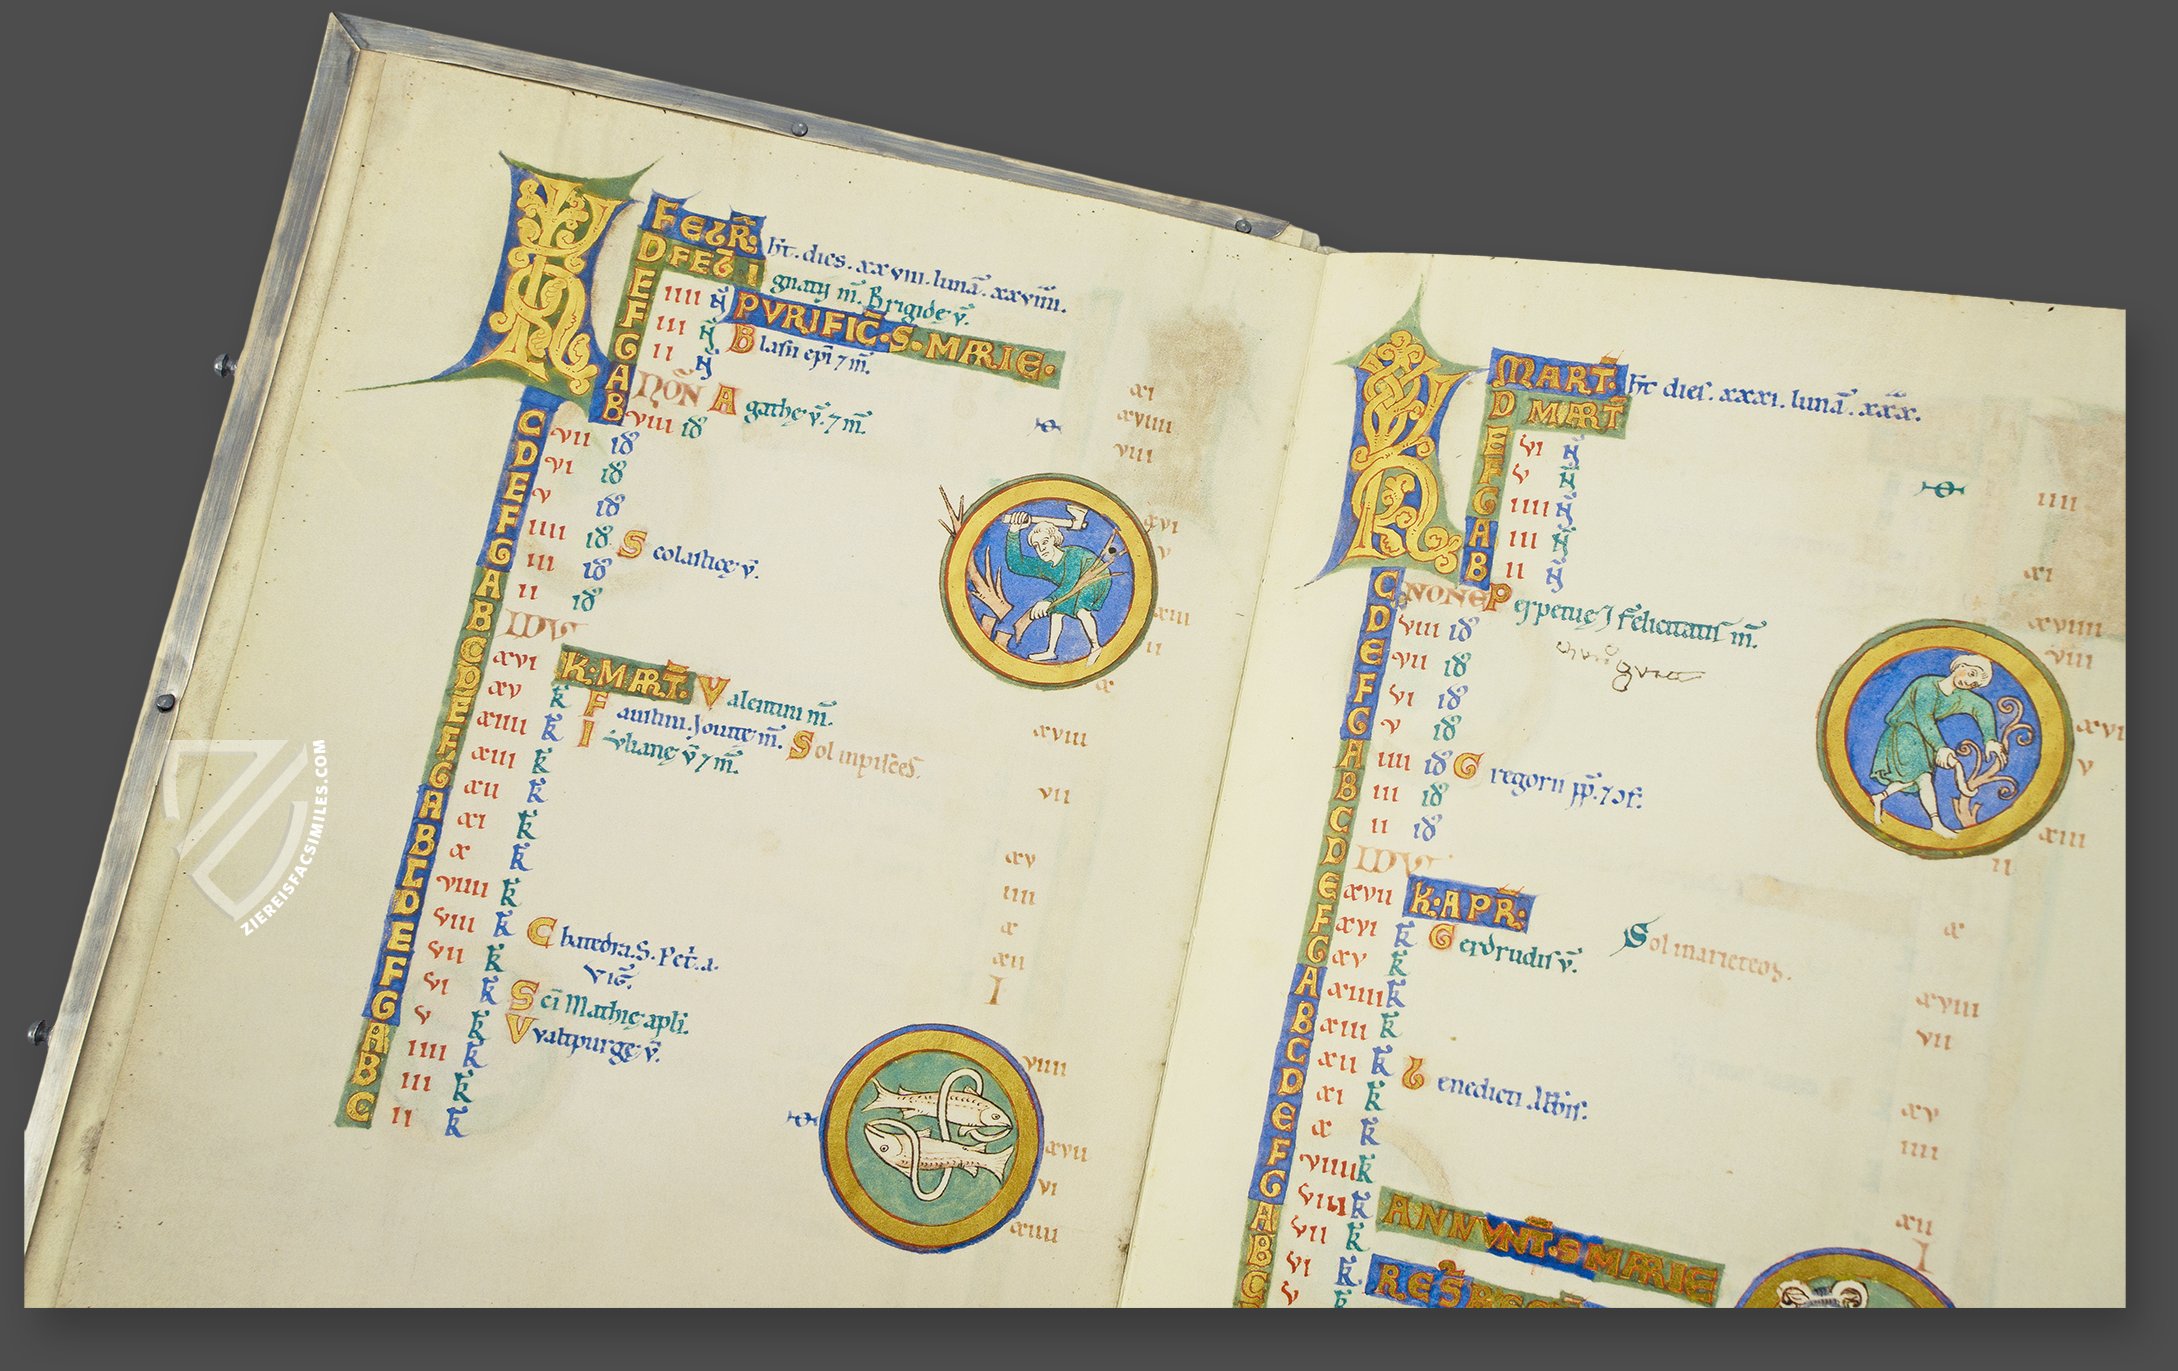 KL FEBR̄: h̄t. dies. xxviii. lunā. xxviiii.
D FEB̄ I gnatii m̄. Brigidę v̄.
E IIII N̄ PVRIFIC̄. S. MARIE.
F III N̄ Blasii epī 7 m̄.
G II N̄
A NON̄ Agathę v̄. 7 m̄. xi
B VIII id̄ xviiii
C VII id̄ viii
D VI id̄
E V id̄ xvi
F IIII id̄ Scolasticę v̄. v
G III id̄
A II id̄ xiii
B IDVS ii
C xvi K. MART̄. Valentini m̄. x
D xv k̄ Faustini. Iouitę m̄.
E xiiii k̄ Iulianę v̄ 7 m̄. Sol in pisces. xviii
F xiii k̄
G xii k̄ vii
A xi k̄
B x k̄ xv
C viiii k̄ iiii
D viii k̄ Chatedra. S. Pet̄.
E vii k̄ xii
F vi k̄ Scī Mathię apli. I
G v k̄ Vvaltpurgę v̄.
A iiii k̄ viiii
B iii k̄
C ii k̄ xvii
vi
xiiii
KL MART̄. h̄t dies. xxxi. lunā. xxx.
D MART̄
E VI N̄
F V N̄ iiii
G IIII N̄
A III N̄ xi
B II N̄
C NONE Perpetuę 7 Felicitatis m̄. xviiii
D VIII id̄ viii
E VII id̄
F VI id̄ xvi
G V id̄ v
A IIII id̄ Gregorii pp̄. 7 ɔf.
B III id̄ xiii
C II id̄ ii
D IDVS
E xvii K. APR̄: x
F xvi k̄ Gerdrudis v̄. Sol in arietem
G xv k̄ xviii
A xiiii k̄ vii
B xiii k̄
C xii k̄ benedicti Abb̄is. xv
D xi k̄ iiii
E x k̄
F viiii k̄ xii
G viii k̄ ANNVNT̄. S MARIE I
A vii k̄
B vi k̄ RES̄
C v k̄
ZIEREISFACSIMILES.COM